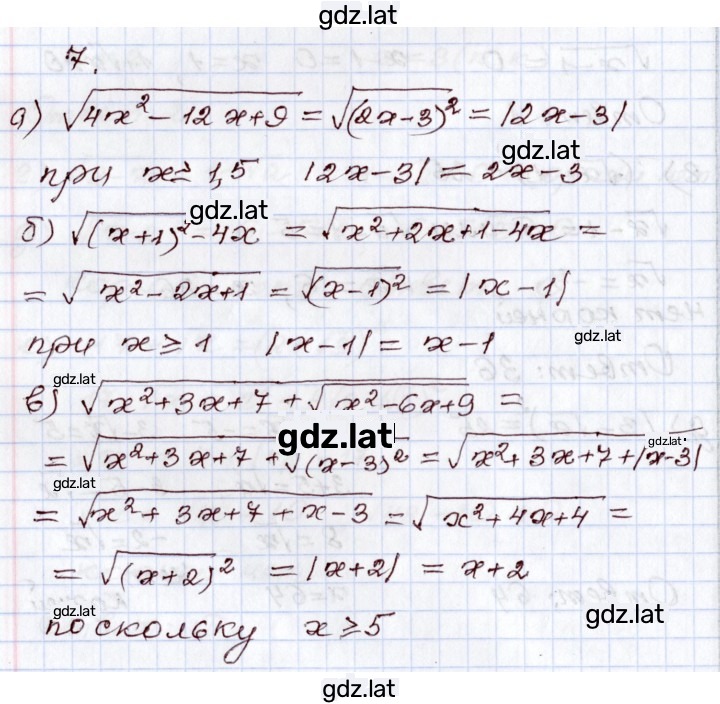 gdz.lat
7.
а) √(4x² − 12x + 9) = √((2x−3)²) = |2x−3|
gdz.lat
при x ≥ 1,5 |2x−3| = 2x−3
gdz.lat
б) √((x+1)² − 4x) = √(x² + 2x + 1 − 4x) =
= √(x² − 2x + 1) = √((x−1)²) = |x−1|
gdz.lat
при x ≥ 1 |x−1| = x−1
gdz.lat
в) √(x² + 3x + 7 + √(x² − 6x + 9)) =
gdz.lat gdz.lat
= √(x² + 3x + 7 + √((x−3)²)) = √(x² + 3x + 7 + |x−3|)
gdz.lat
= √(x² + 3x + 7 + x − 3) = √(x² + 4x + 4) =
= √((x+2)²) = |x+2| = x+2
gdz.lat gdz.lat
поскольку x ≥ 5
gdz.lat